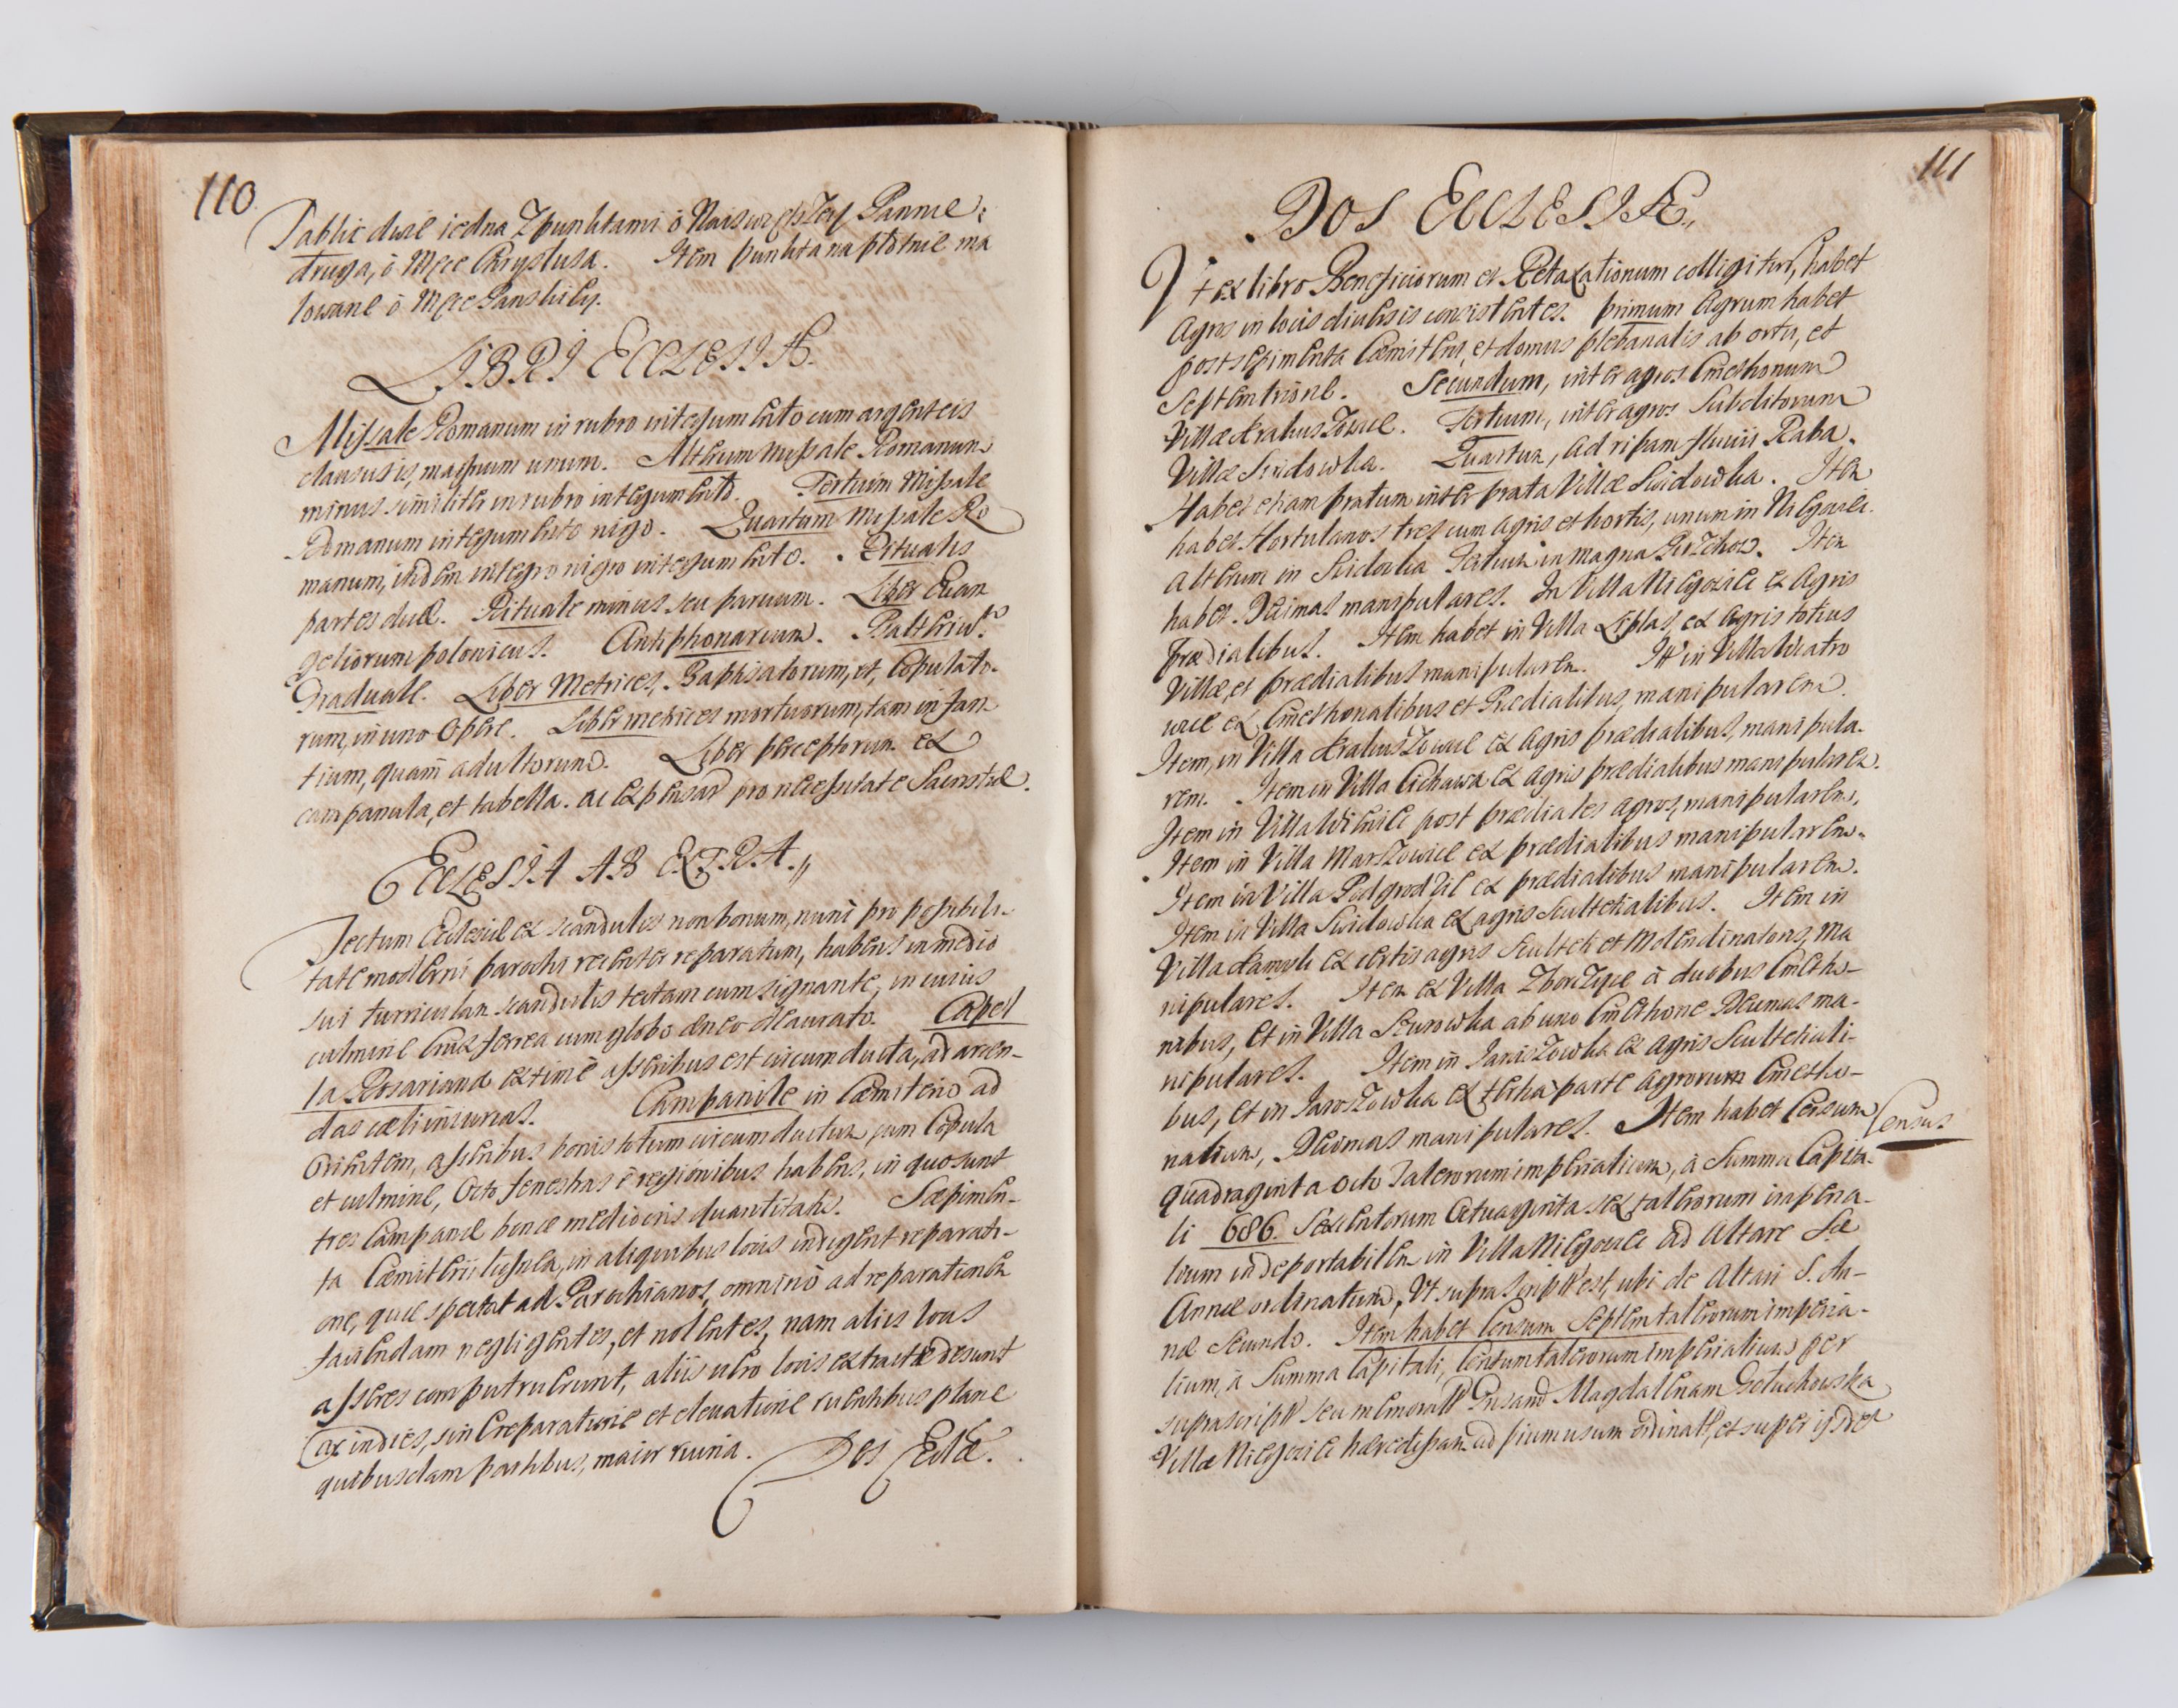 110.
Tablic dwie iedna Z punktami ò Naiswiętszey Pannie,
druga, ò Męce Chrystusa. Item punkta na płotnie ma
lowane ò Męce Panskiey.
LIBRI ECCLESIÆ.
Missale Romanum in rubro integumento cum argenteis
clausuris, magnum unum. Alterum Missale Romanum
minus similiter in rubro integumento. Tertium Missale
Romanum integumento nigro. Quartum Missale Ro
manum, itidem integro nigro integumento. Ritualis
partes duæ. Rituale minus seu paruum. Liber Euan
geliorum polonicus. Antiphonarium. Psalterium.
Graduale. Liber Metrices, Baptisatorum, et, Copulato-
rum, in uno Opere. Liber metrices mortuorum, tam infan
tium, quam adultorum. Liber perceptorum ex
campanula, et tabella. ac expensar pro necessitate Ecclesiæ.
ECCLESIA AB EXTRA.
Tectum Ecclesiæ ex scandulis non bonum, nunc pro possibili-
tate moderni parochi recenter reparatum, habens in medio
sui turriculam scandulis tectam cum signante, in cuius
culmine Crux ferrea cum globo æneo deaurato. Capel
la Rosariana extime asseribus est circumducta, ad arcen-
das cæli iniurias. Campanile in Cæmiterio ad
Orientem, asseribus bonis totum circumductum cum Copula
et culmine, Octo fenestras è regionibus habens, in quo sunt
tres Campanæ bonæ mediocris quantitatis. Sæpimen-
ta Cæmiterii lignea, in aliquibus locis indigent reparati-
one, quæ spectat ad Parochianos, omnino ad reparationem
faciendam negligentes, et nolentes, nam aliis locis
asseres computruerunt, aliis vero locis extractæ desunt
ac indies, sine reparatione et eleuatione ruentibus plane
quibusdam partibus, maior ruina. Dos Eccłæ.
111
DOS ECCLESIÆ,,
Vt ex libro Beneficiorum et Retaxationum colligitur, habet
Agros in locis diuersis consistentes. primum Agrum habet
post sepimenta Cæmiterii, et domus plebanalis ab ortu, et
Septemtrione. Secundum, inter agros Cmethonum
Villæ Krakuszowice. Tertium, inter agros Subditorum
Villæ Swidowka. Quartum, Ad ripam fluuii Raba.
Habet etiam pratum inter prata Villæ Swidowka. Item
habet Hortulanos tres cum agris et hortis, unum in Niegowic.
alterum in Swidowka Tertium in magna Pierzchow. Item
habet Decimas manipulares. In Villa Niegowice ex Agris
prædialibus. Item habet in Villa Liplas ex Agris totius
Villæ, et prædialibus manipularem. Itm in Villa Wiatro
wice ex Cmethonalibus et Prædialibus, manipularem.
Item, in Villa Krakuszowice ex Agris prædialibus, manipula-
rem. Item in Villa Cichawa ex Agris prædialibus manipularem.
Item in Villa Wieniec post prædiales agros, manipularem,
Item in Villa Marszowice ex prædialibus manipularem.
Item in Villa Podgrodzie ex prædialibus manipularem.
Item in Villa Swidowka ex agris Scultetialibus. Item in
Villa Kamyk ex certis agris Sculteti et Molendinatoris, ma
nipulares. Item ex Villa Zborczyce à duobus Cmetho-
nibus, et in Villa Surowka ab uno Cmethone Decimas ma-
nipulares. Item in Jaroszowka ex Agris Scultetiali-
bus, et in Jaroszowka ex tertia parte Agrorum Cmetho-
nalium, Decimas manipulares. Item habet Censum
Census
quadraginta octo Talerorum imperialium, à Summa Capita-
li 686. Sexentorum Octuaginta sex talerorum imperia-
lium indeportabilem in Villa Niegowice ad Altare S.æ
Annæ ordinatum, Vt supra script est, ubi de Altari S. An-
næ Secundo. Item habet Censum Septem talerorum imperia-
lium, à Summa Capitali, Centum talerorum imperialium per
suprascript seu memorat Gnsam Magdalenam Gołuchowska
Villæ Niegowice hæredissam ad pium usum ordinat, et super